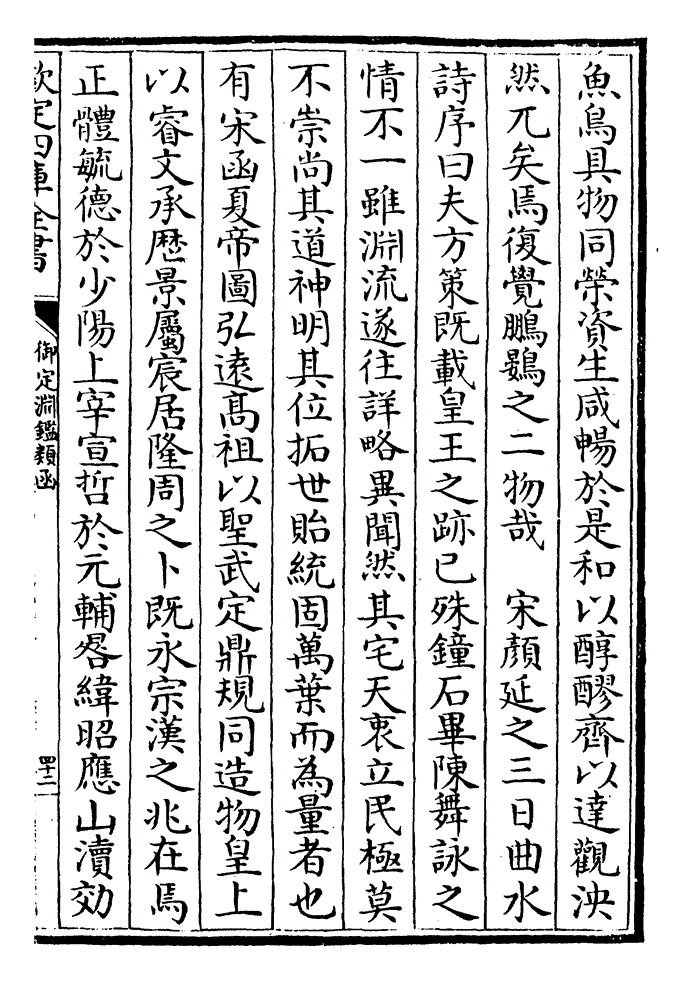 魚鳥具物同榮資生咸暢於是和以醇醪齊以達觀泱
然兀矣焉復覺鵬鷃之二物哉　宋顔延之三日曲水
詩序曰夫方策既載皇王之跡已殊鐘石畢陳舞詠之
情不一雖淵流遂往詳略異聞然其宅天衷立民極莫
不崇尚其道神明其位拓世貽統固萬葉而為量者也
有宋函夏帝圖弘遠髙祖以聖武定鼎規同造物皇上
以睿文承歴景屬宸居隆周之卜既永宗漢之兆在焉
正體毓德於少陽上宰宣哲於元輔晷緯昭應山瀆効
欽定四庫全書
御定淵鑑類函
四十二